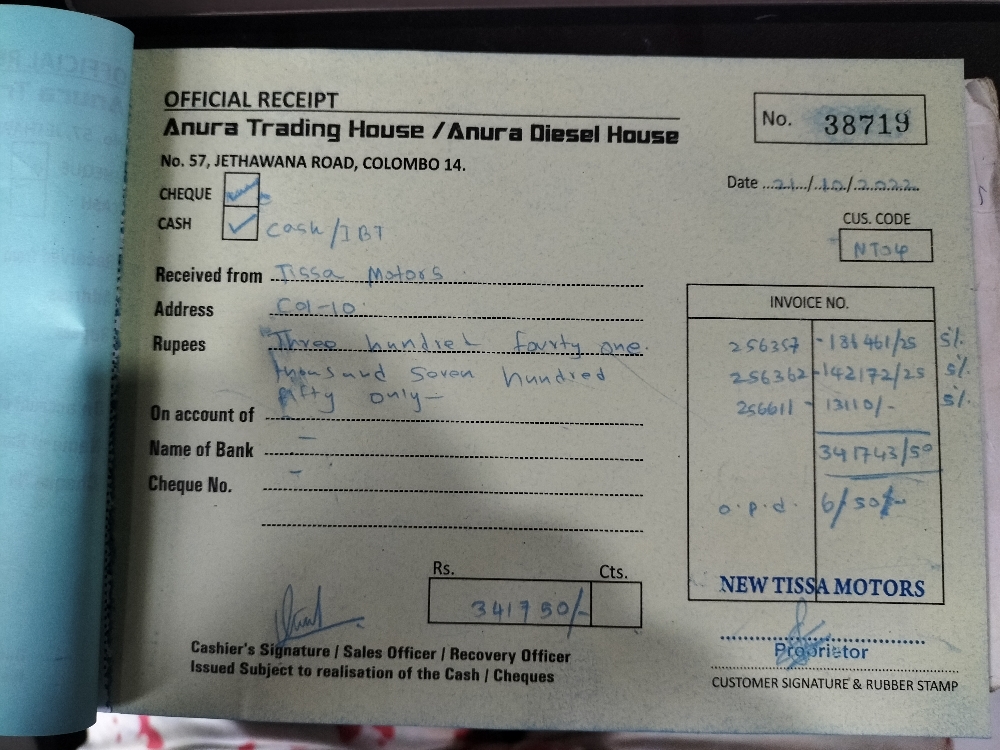 OFFICIAL RECEIPT
Anura Trading House / Anura Diesel House
No. 57, JETHAWANA ROAD, COLOMBO 14.
No. 38719
Date 21/10/2022
CHEQUE
CASH Cash/IBT
CUS. CODE
NT04
Received from Tissa Motors
Address Col-10
Rupees Three hundred fourty one
thousand seven hundred
fifty only-
On account of
Name of Bank -
Cheque No. -
INVOICE NO.
256357 - 186461/25 5%
256362 - 142172/25 5%
256611 - 13110/- 5%
341743/50
o.p.d. 6/50/-
Rs. Cts.
341750/-
NEW TISSA MOTORS
Proprietor
Cashier's Signature / Sales Officer / Recovery Officer
Issued Subject to realisation of the Cash / Cheques
CUSTOMER SIGNATURE & RUBBER STAMP